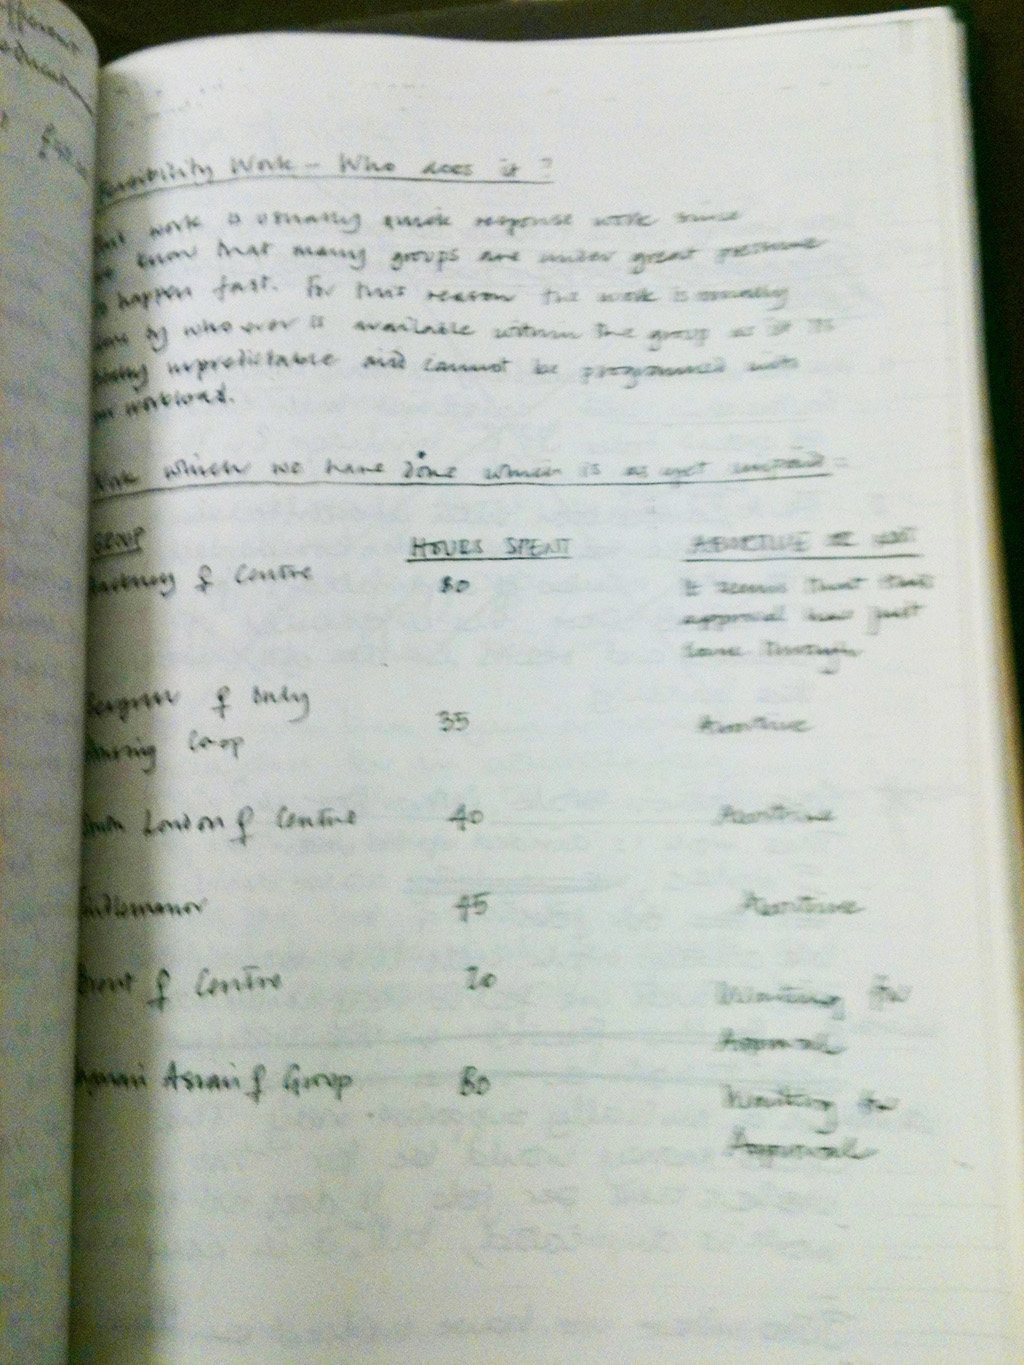 Feasibility Work – Who does it?
This work is usually quick response work since
we know that many groups are under great pressure
to happen fast. For this reason the work is usually
done by who ever is available within the group as it is
totally unpredictable and cannot be programmed into
our workload.
Work which we have done which is as yet unpaid =
GROUP HOURS SPENT ABORTIVE OR NOT
Hackney ♀ Centre 80 It seems that this
approval has just
come through
♀ Only
Housing Co-op 35 Abortive
South London ♀ Centre 40 Abortive
45 Abortive
Brent ♀ Centre 20 Waiting for
Approval
Asian ♀ Group 80 Waiting for
Approval